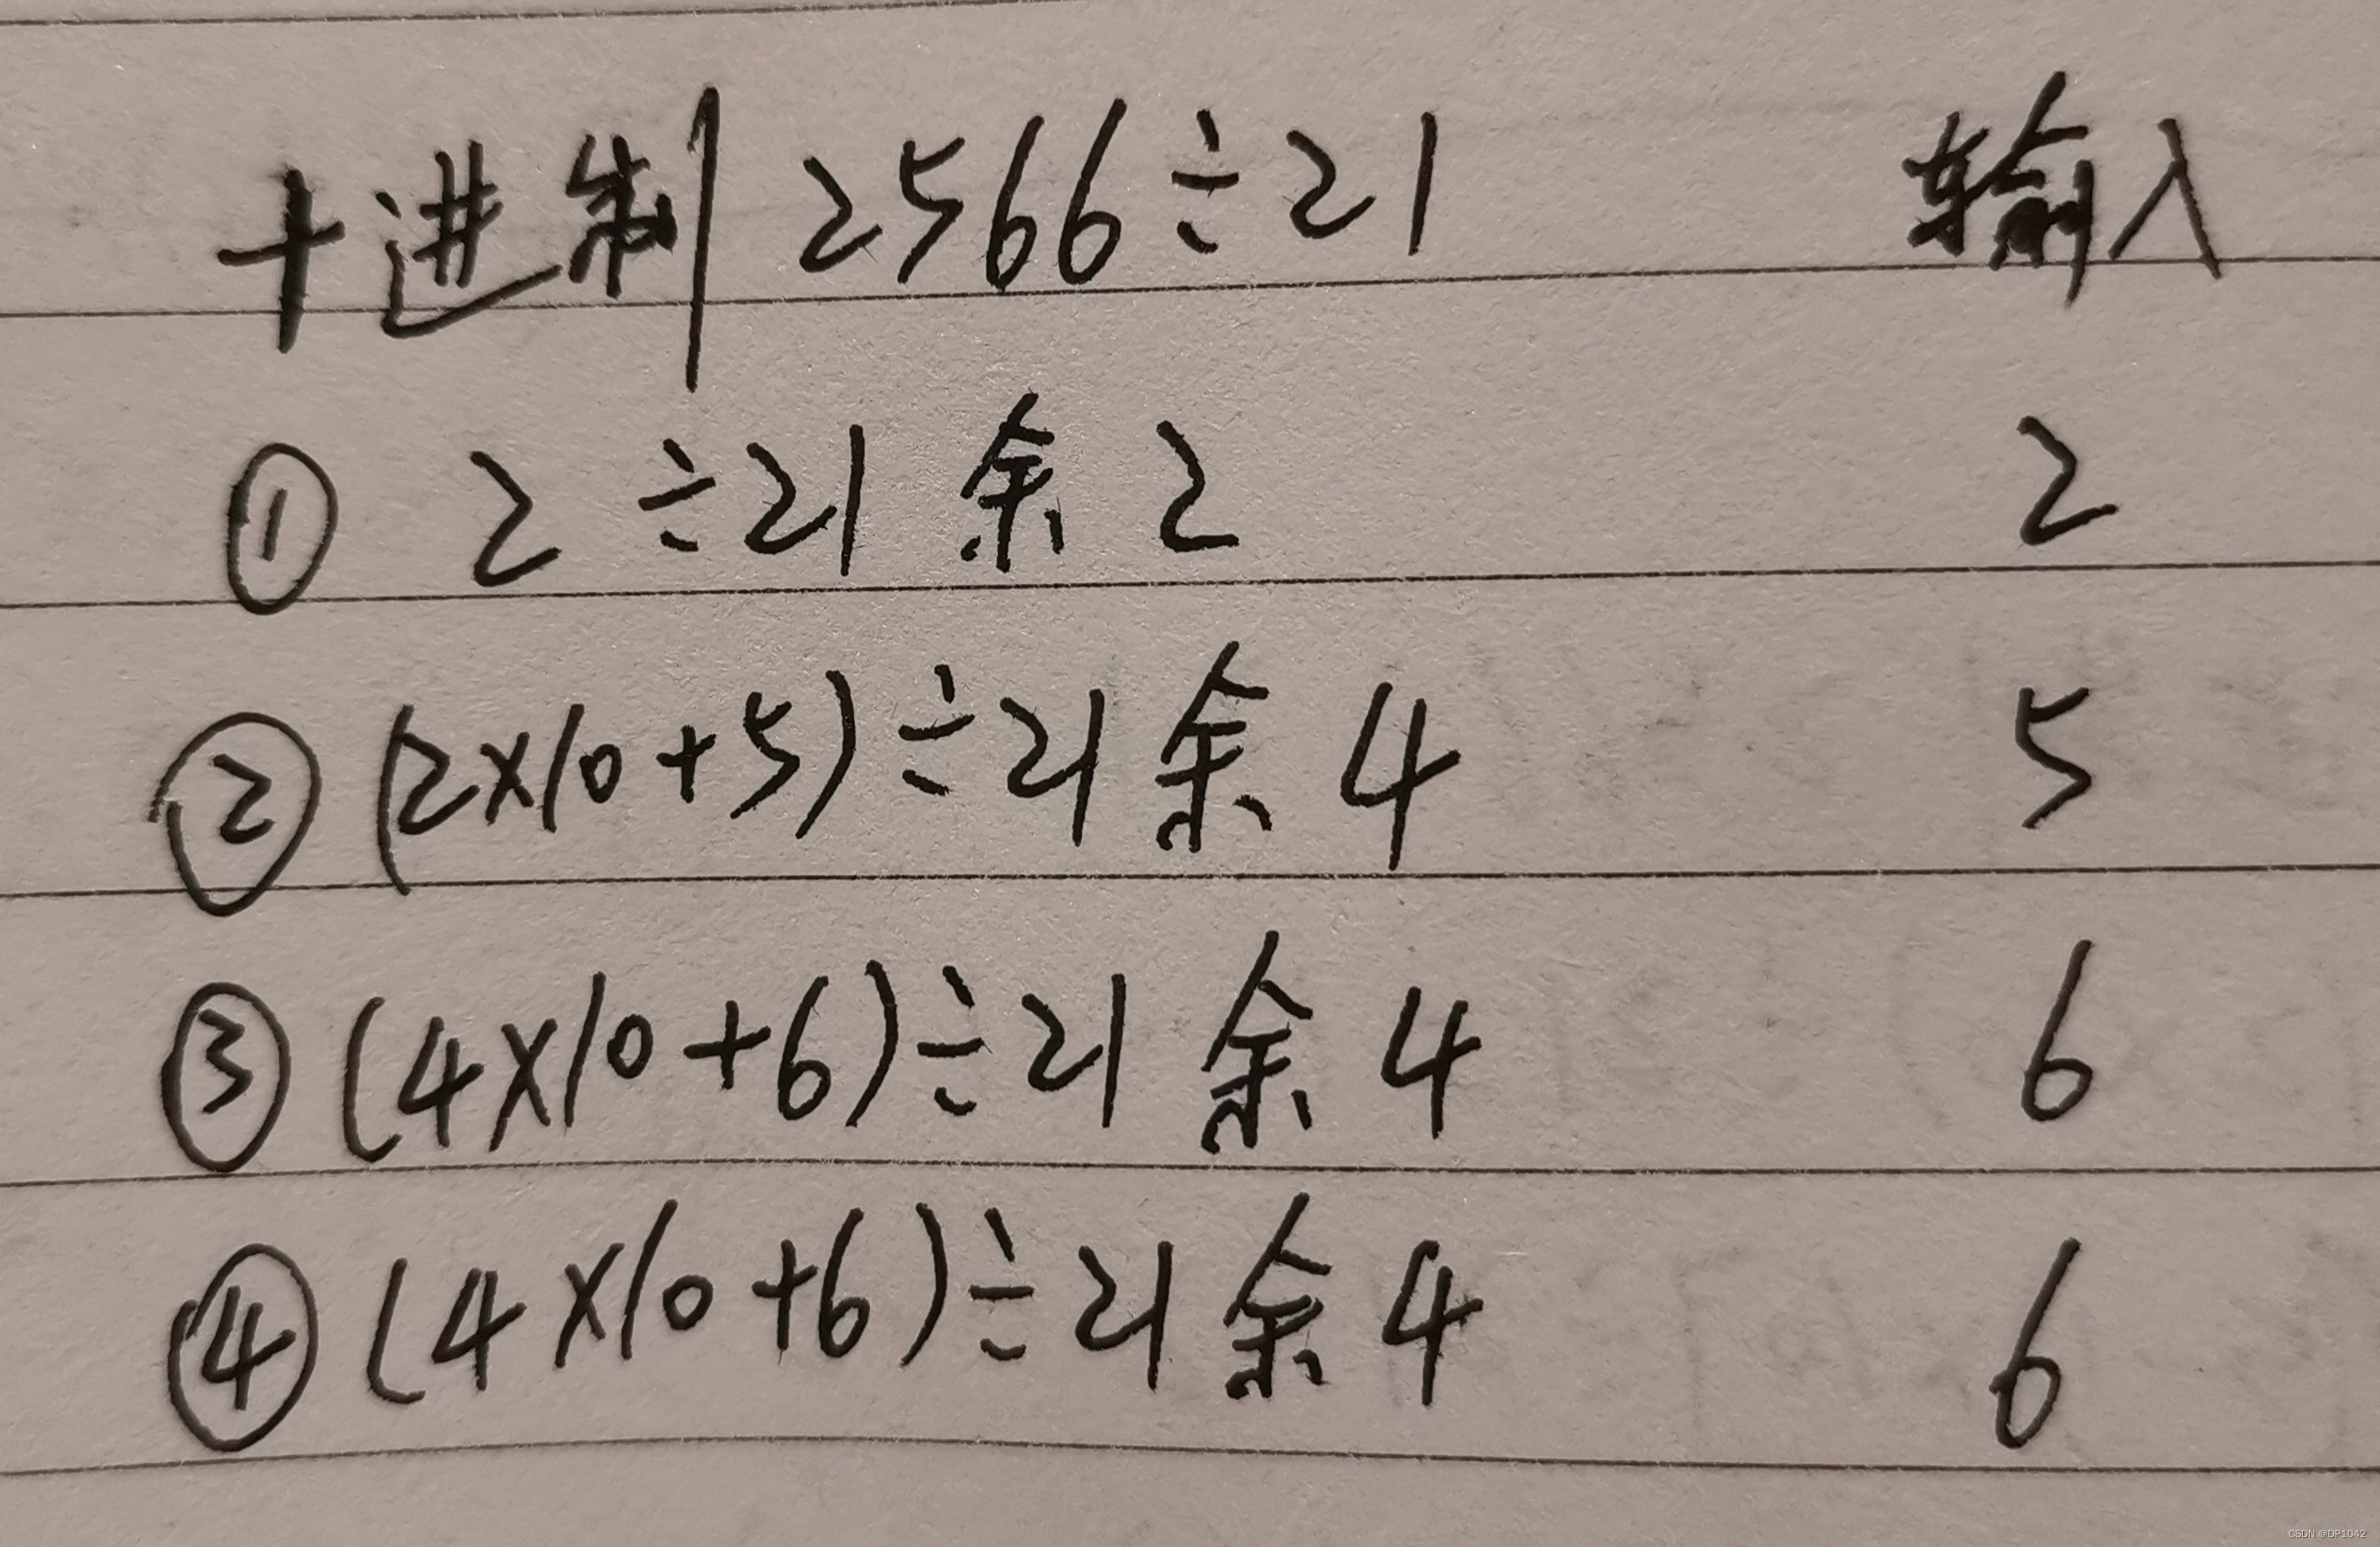 十进制 2566÷21 输入
① 2 ÷21 余 2 2
② (2×10+5)÷21 余 4 5
③ (4×10+6)÷21 余 4 6
④ (4×10+6)÷21 余 4 6
CSDN @DP1042